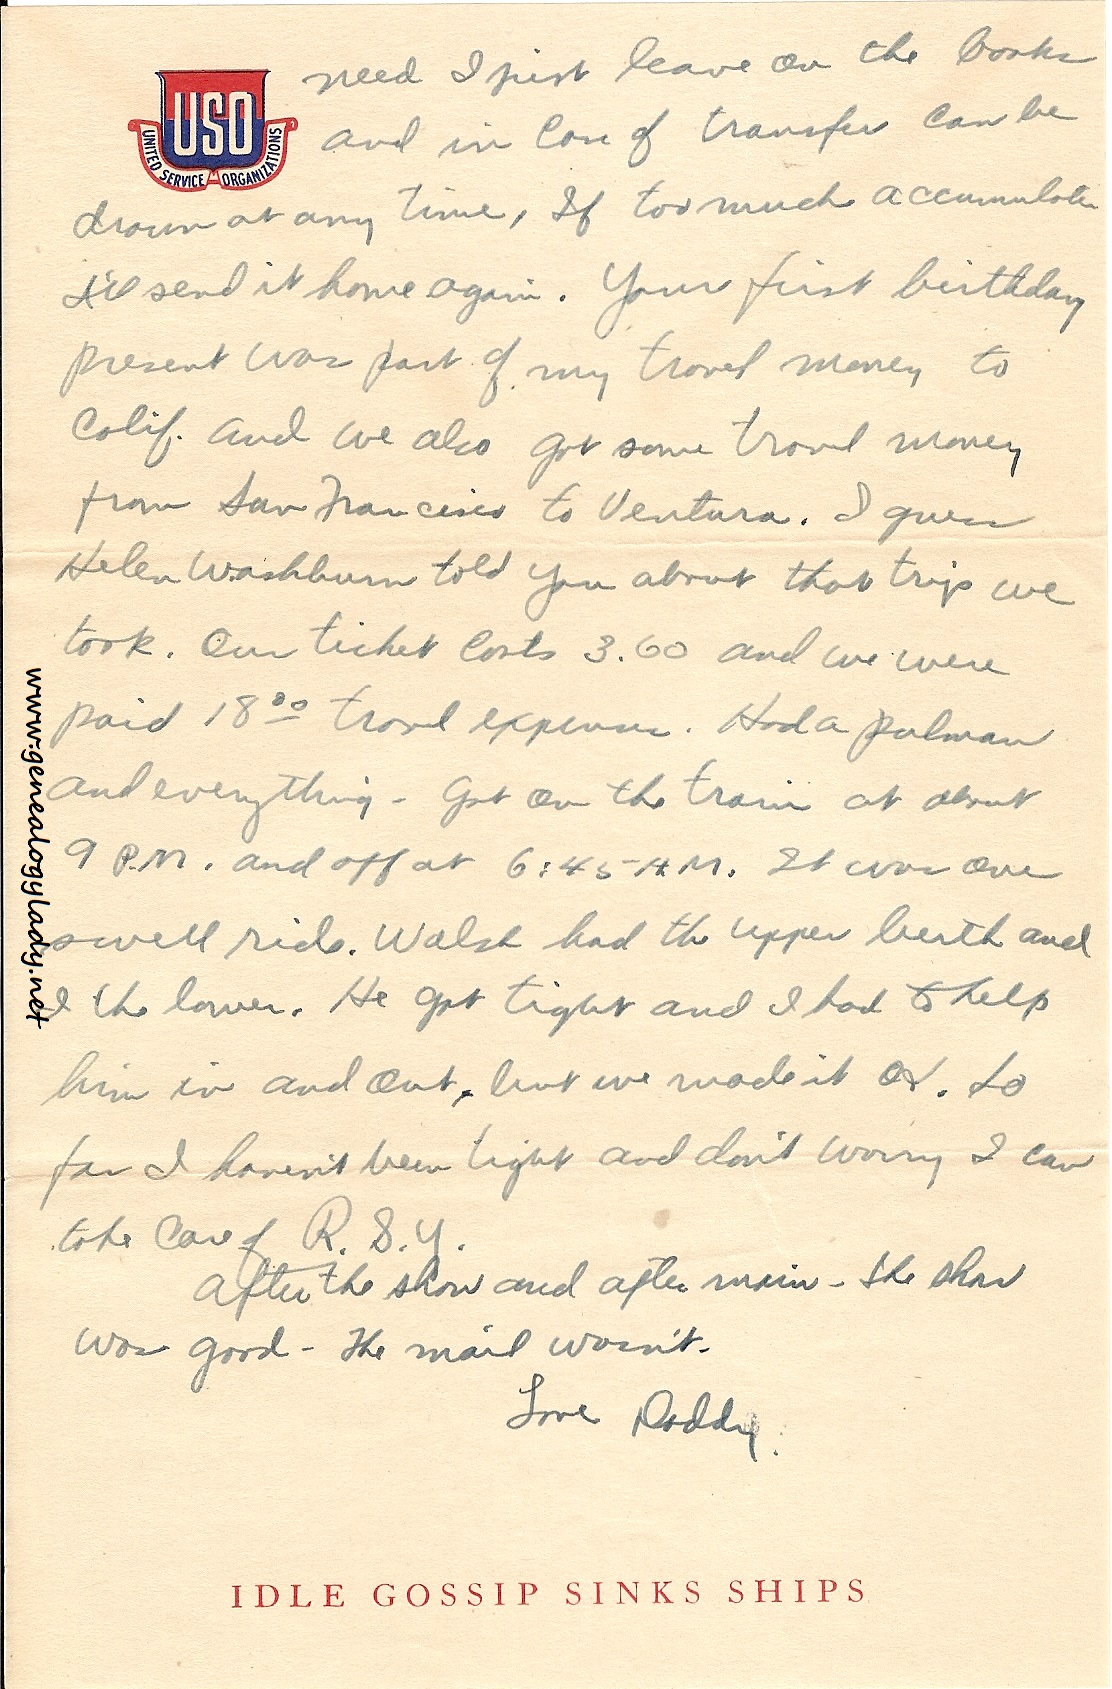 USO
UNITED SERVICE ORGANIZATIONS
need I just leave on the books
and in case of transfer can be
drawn at any time, If too much accumulates
I'll send it home again. Your first birthday
present was part of my travel money to
Calif. and we also got some travel money
from San Francisco to Ventura. I guess
Helen Washburn told you about that trip we
took. Our ticket costs 3.60 and we were
paid 18.00 travel expenses. Had a pulman
and everything - Got on the train at about
9 P.M. and off at 6:45 A.M. It was one
swell ride. Walsh had the upper berth and
I the lower. He got tight and I had to help
him in and out, but we made it OK. So
far I haven't been tight and don't worry I can
take care of R.S.Y.
After the show and after main - the show
was good - the mail wasn't.
Love Daddy.
IDLE GOSSIP SINKS SHIPS
www.genealogylady.net